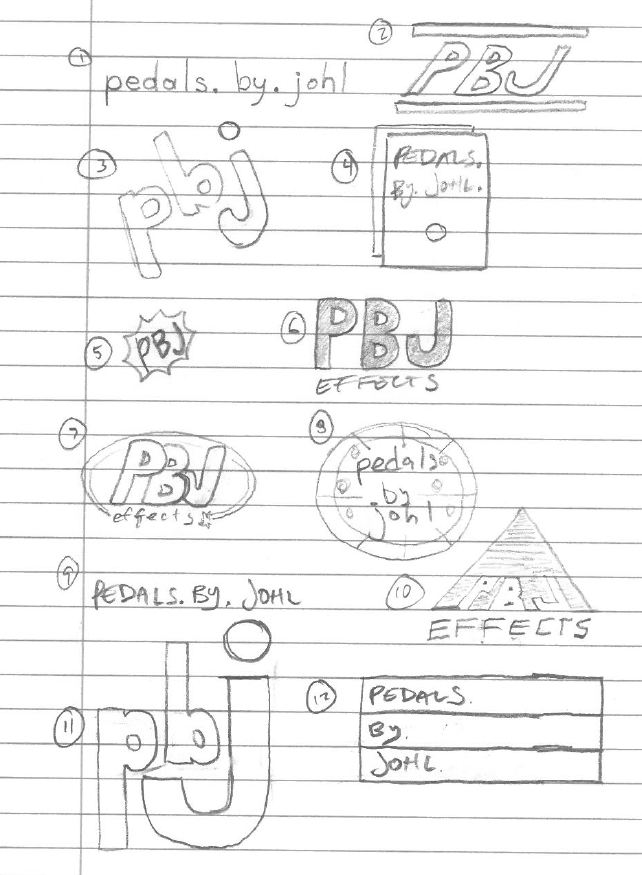 1
pedals. by. johl
2
PBJ
3
pbj
4
PEDALS.
By. JOHL.
5
PBJ
6
PBJ
EFFECTS
7
PBJ
effects
8
pedals
by
johl
9
PEDALS. By. JOHL
10
PBJ
EFFECTS
11
pbj
12
PEDALS.
By.
JOHL.